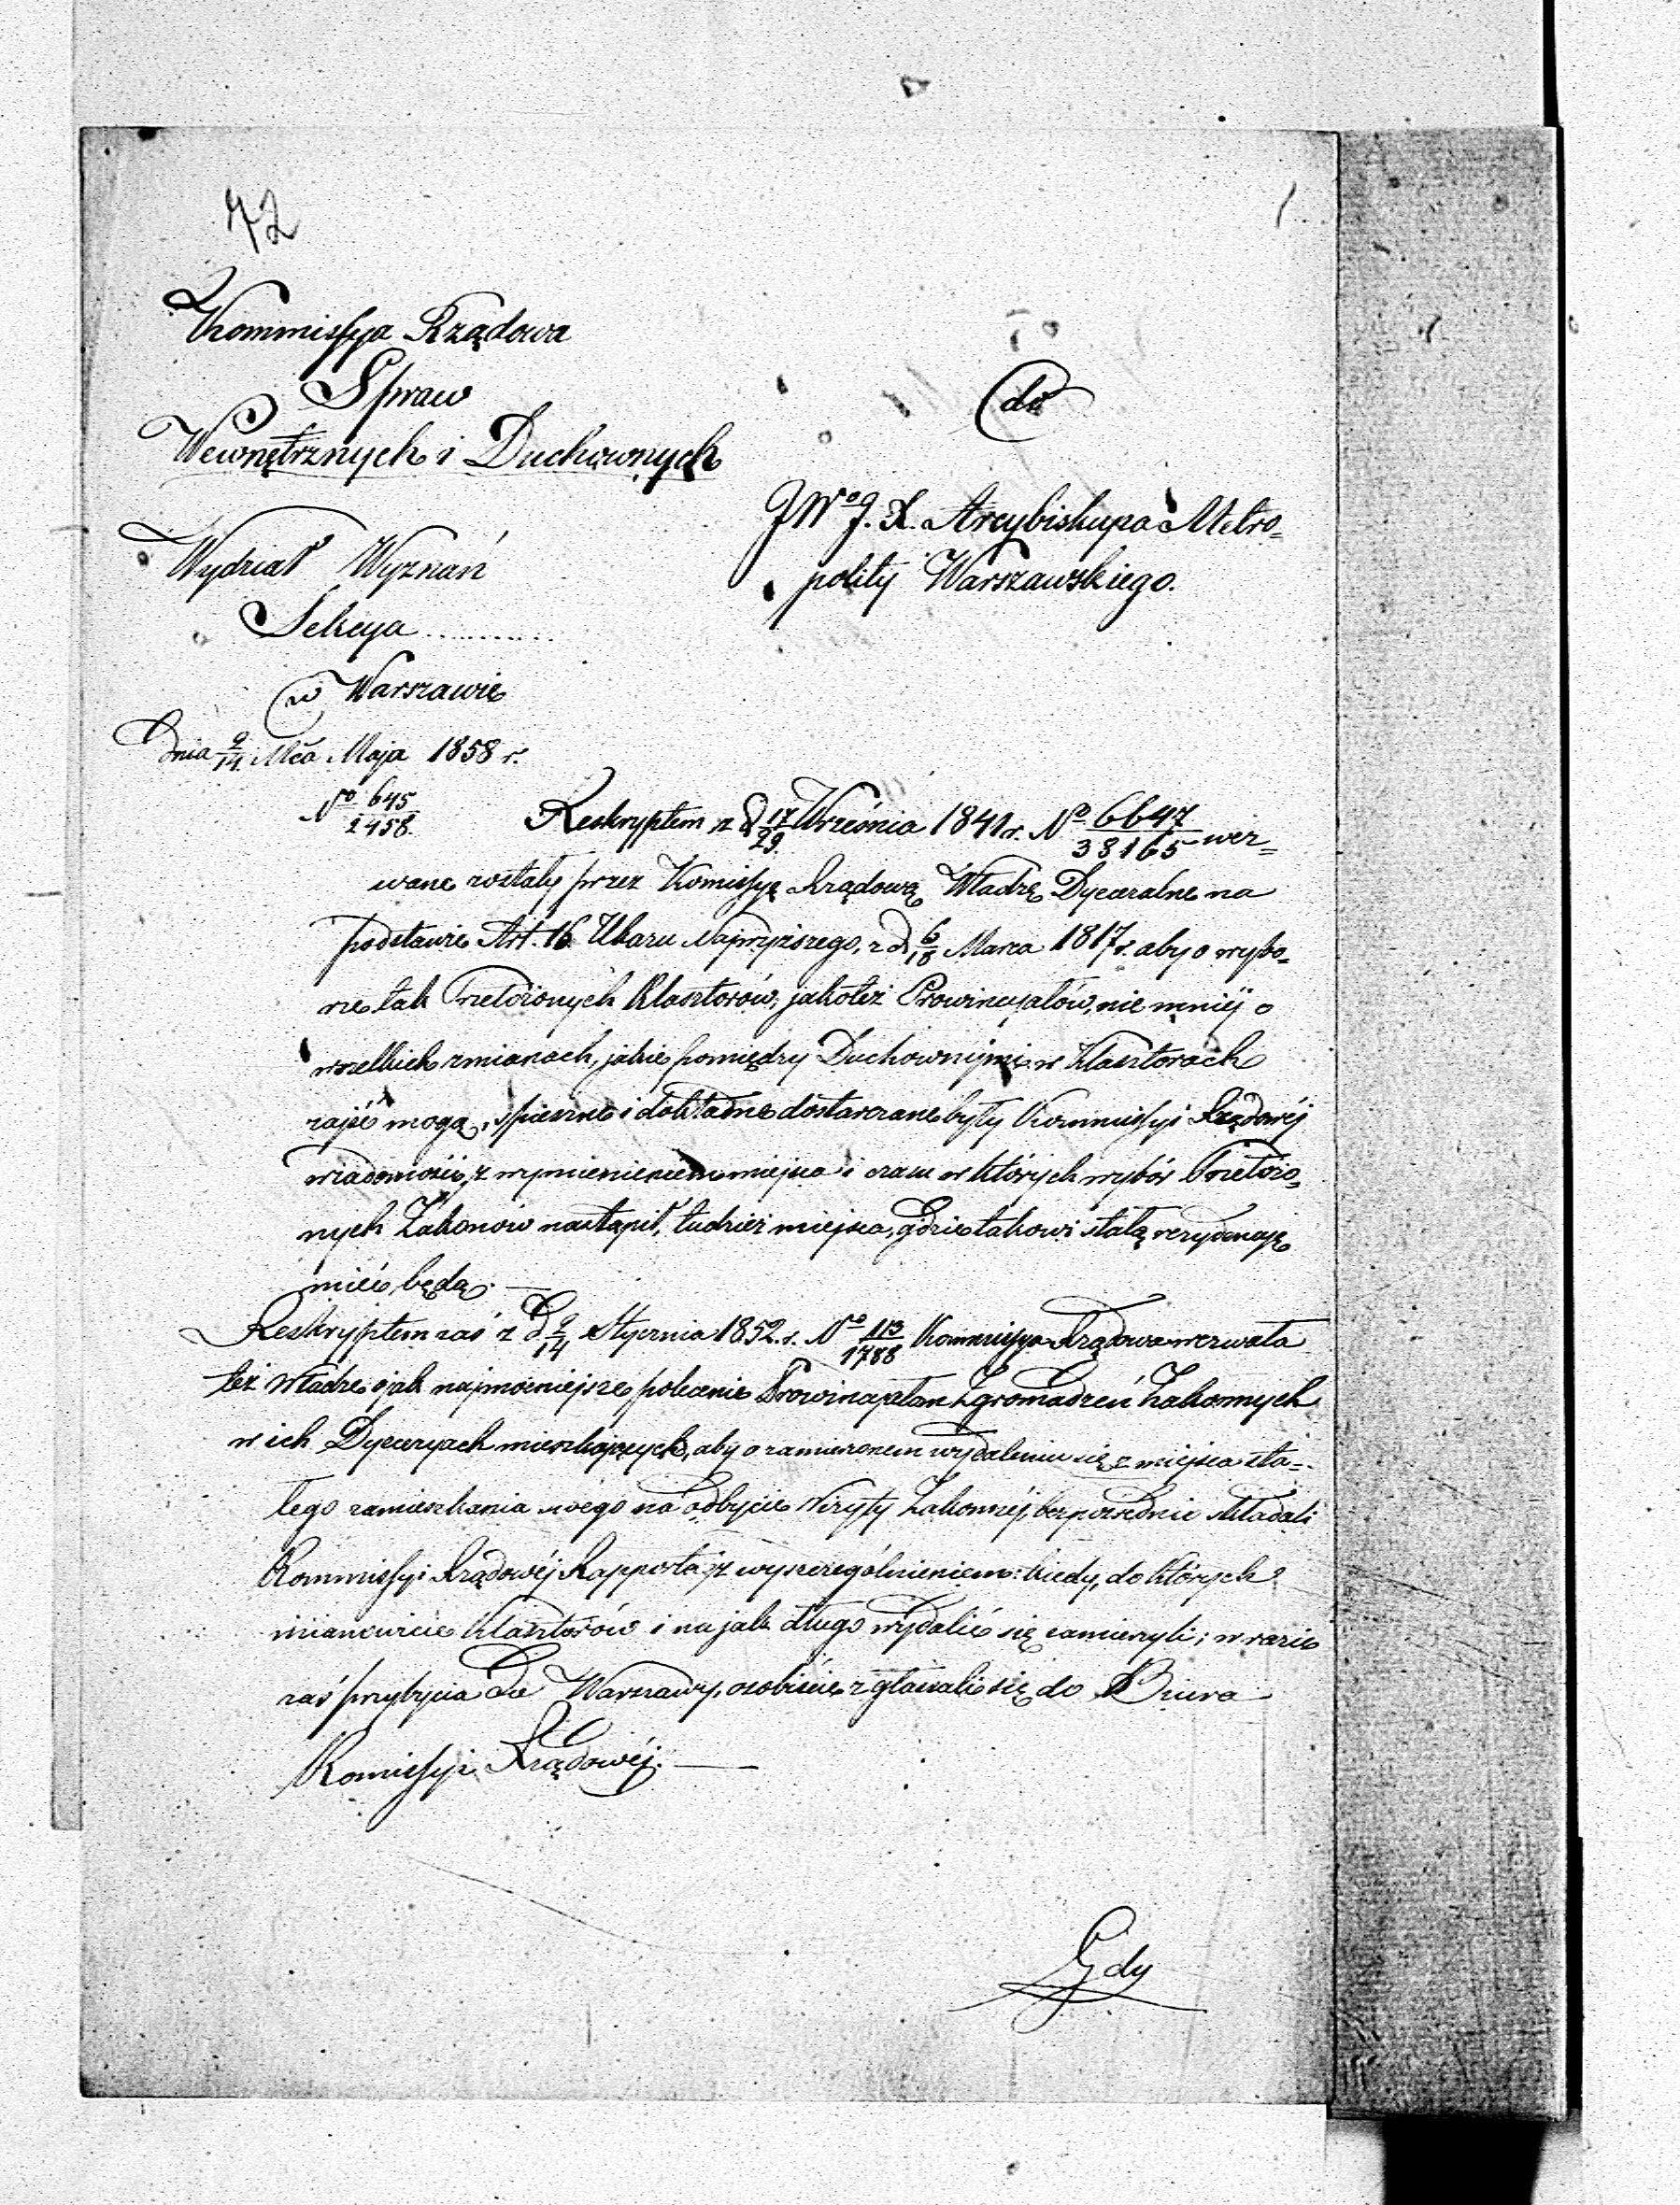 72
Kommissya Rządowa
Spraw
Wewnętrznych i Duchownych
do
JWo J. X. Arcybiskupa Metro=
polity Warszawskiego.
Wydział Wyznań
Sekcya ............
w Warszawie
Dnia 2/14 Mca Maja 1858 r.
No 645/2458.
Reskryptem z d. 17/29 Września 1841 r. No 6647/38165 wez=
wane zostały przez Komissyę Rządową Władze Dyecezalne na
podstawie Art. 16 Ukazu Najwyższego, z d. 6/18 Marca 1817 r. aby o wybo=
rze tak Przełożonych Klasztorów, jakoteż Prowincyałów, nie mniéj o
wszelkich zmianach, jakie pomiędzy Duchownymi w Klasztorach
zajść mogą, spieszne i dokładne dostarczane były Kommissyi Rządowéj
wiadomości, z wymienieniem miejsca i czasu w których wybór Przełożo=
nych Zakonów nastąpił, tudzież miejsca, gdzie takowi stałą rezydencyę
mieć będą. —
Reskryptem zaś z d. 2/14 Stycznia 1852 r. No 113/1788 Kommissya Rządowa wezwała
też Władze o jak najmocniejsze polecenie Prowincyałom Zgromadzeń Zakonnych
w ich Dyecezyach mieszkających, aby o zamierzonem wydaleniu się z miejsca sta=
łego zamieszkania swego na odbycie Wizyty Zakonnéj, bezpośrednie składali
Kommissyi Rządowéj Rapporta z wyszczególnieniem: kiedy, do których
mianowicie Klasztorów i na jak długo wydalić się zamierzyli; w razie
zaś przybycia do Warszawy, osobiście zgłaszali się do Biura
Komissyi Rządowéj. —
Gdy